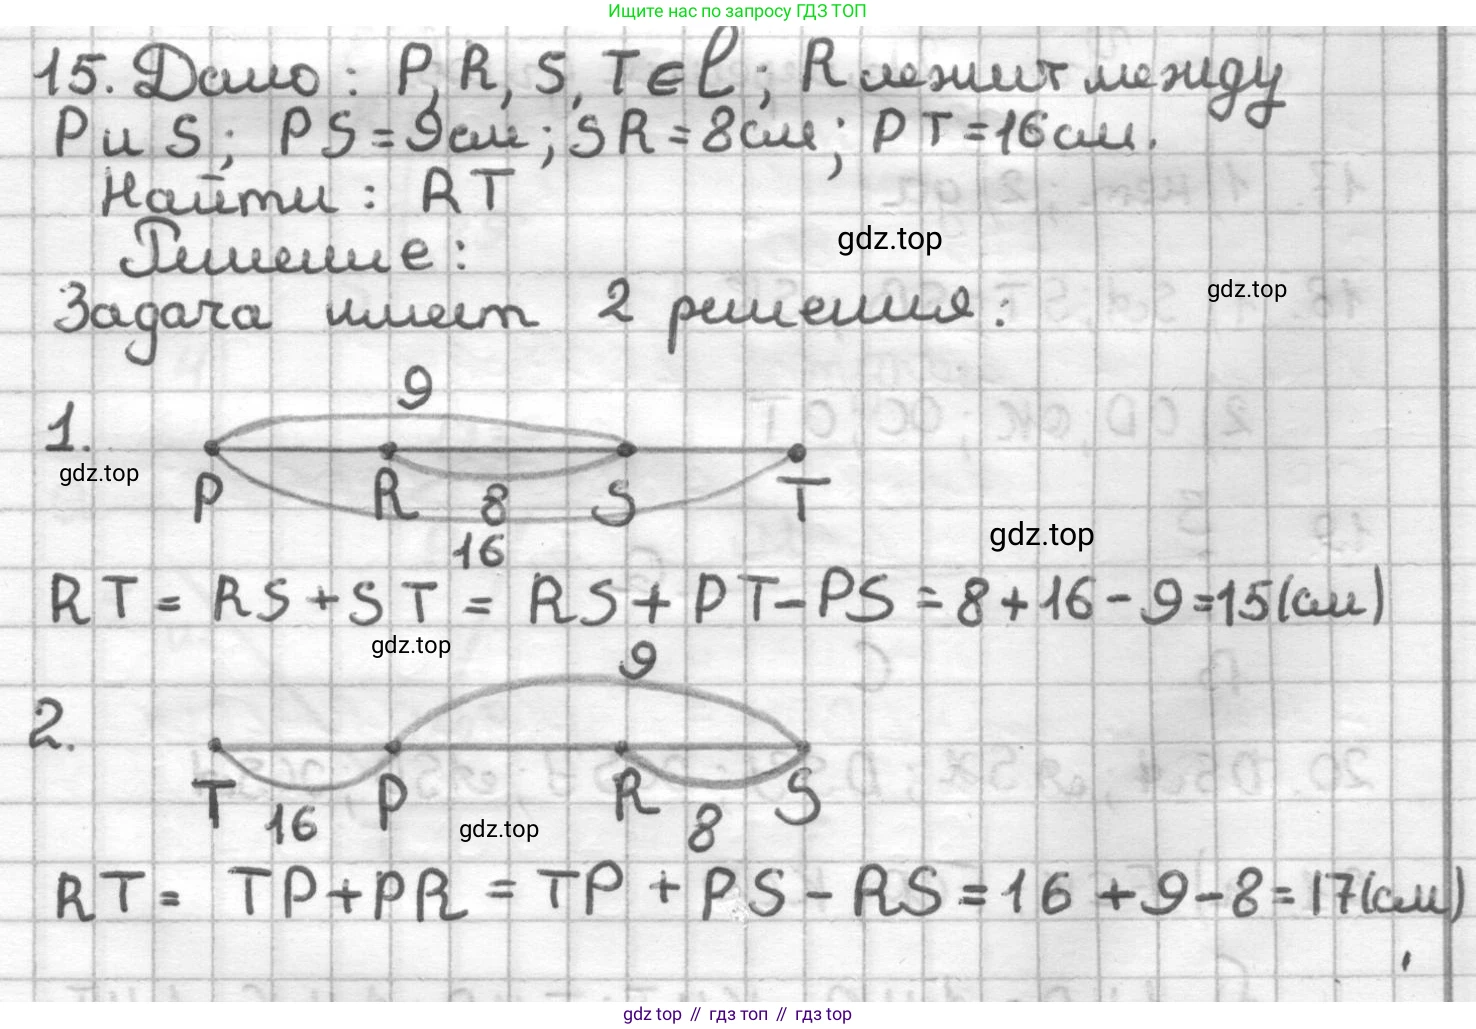 Ищите нас по запросу ГДЗ ТОП
15. Дано: P, R, S, T ∈ l; R лежит между
P и S; PS = 9 см; SR = 8 см; PT = 16 см.
Найти: RT
gdz.top
Решение:
gdz.top
Задача имеет 2 решения:
9
1.
gdz.top
P R 8 S T
gdz.top
16
RT = RS + ST = RS + PT - PS = 8 + 16 - 9 = 15 (см)
gdz.top
9
2.
T 16 P R 8 S
gdz.top
RT = TP + PR = TP + PS - RS = 16 + 9 - 8 = 17 (см)
gdz.top // гдз топ // гдз top